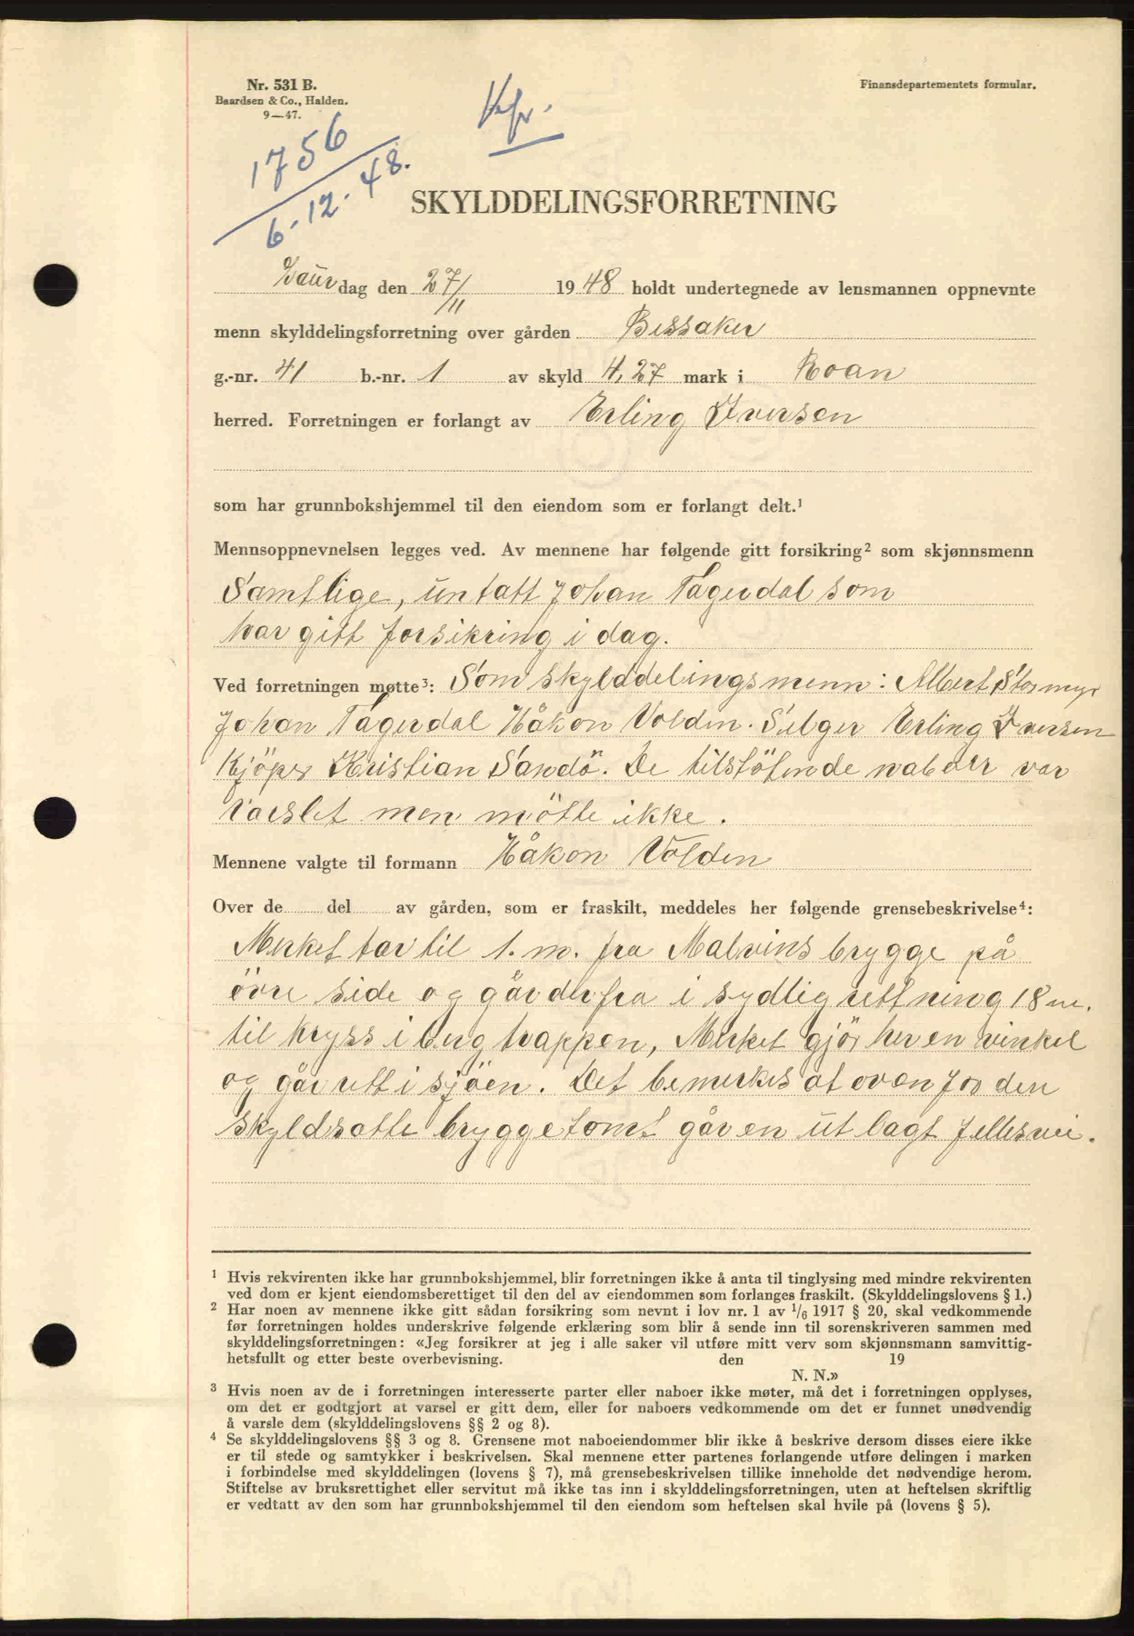 Nr. 531 B.
Baardsen & Co., Halden.
9—47.
Finansdepartementets formular.
Kfr.
1756
6-12-48.
SKYLDDELINGSFORRETNING
Laurdag den 27/11 1948 holdt undertegnede av lensmannen oppnevnte
menn skylddelingsforretning over gården Bessaker
g.-nr. 41 b.-nr. 1 av skyld 4,27 mark i Roan
herred. Forretningen er forlangt av Erling Iversen
som har grunnbokshjemmel til den eiendom som er forlangt delt.¹
Mennsoppnevnelsen legges ved. Av mennene har følgende gitt forsikring² som skjønnsmenn
Samtlige, untatt Johan Fagerdal som
har gitt forsikring i dag.
Ved forretningen møtte³: Som skylddelingsmenn: Albert Stormyr
Johan Fagerdal Håkon Volden. Selger Erling Iversen
Kjöper Kristian Sandö. De tilstötende naboer var
varslet men mötte ikke.
Mennene valgte til formann Håkon Volden
Over de del av gården, som er fraskilt, meddeles her følgende grensebeskrivelse⁴:
Merket tar til 1. m. fra Malvins brygge på
övre side og går derfra i sydlig rettning 18 m.
til kryss i bergtrappen, Merket gjör her en vinkel
og går rett i sjöen. Det bemerkes at oven for den
skyldsatte bryggetomt går en utlagt fellesvei.
¹ Hvis rekvirenten ikke har grunnbokshjemmel, blir forretningen ikke å anta til tinglysing med mindre rekvirenten
ved dom er kjent eiendomsberettiget til den del av eiendommen som forlanges fraskilt. (Skylddelingslovens § 1.)
² Har noen av mennene ikke gitt sådan forsikring som nevnt i lov nr. 1 av 1/6 1917 § 20, skal vedkommende
før forretningen holdes underskrive følgende erklæring som blir å sende inn til sorenskriveren sammen med
skylddelingsforretningen: «Jeg forsikrer at jeg i alle saker vil utføre mitt verv som skjønnsmann samvittig-
hetsfullt og etter beste overbevisning. den 19
N. N.»
³ Hvis noen av de i forretningen interesserte parter eller naboer ikke møter, må det i forretningen opplyses,
om det er godtgjort at varsel er gitt dem, eller for naboers vedkommende om det er funnet unødvendig
å varsle dem (skylddelingslovens §§ 2 og 8).
⁴ Se skylddelingslovens §§ 3 og 8. Grensene mot naboeiendommer blir ikke å beskrive dersom disses eiere ikke
er til stede og samtykker i beskrivelsen. Skal mennene etter partenes forlangende utføre delingen i marken
i forbindelse med skylddelingen (lovens § 7), må grensebeskrivelsen tillike inneholde det nødvendige herom.
Stiftelse av bruksrettighet eller servitut må ikke tas inn i skylddelingsforretningen, uten at heftelsen skriftlig
er vedtatt av den som har grunnbokshjemmel til den eiendom som heftelsen skal hvile på (lovens § 5).